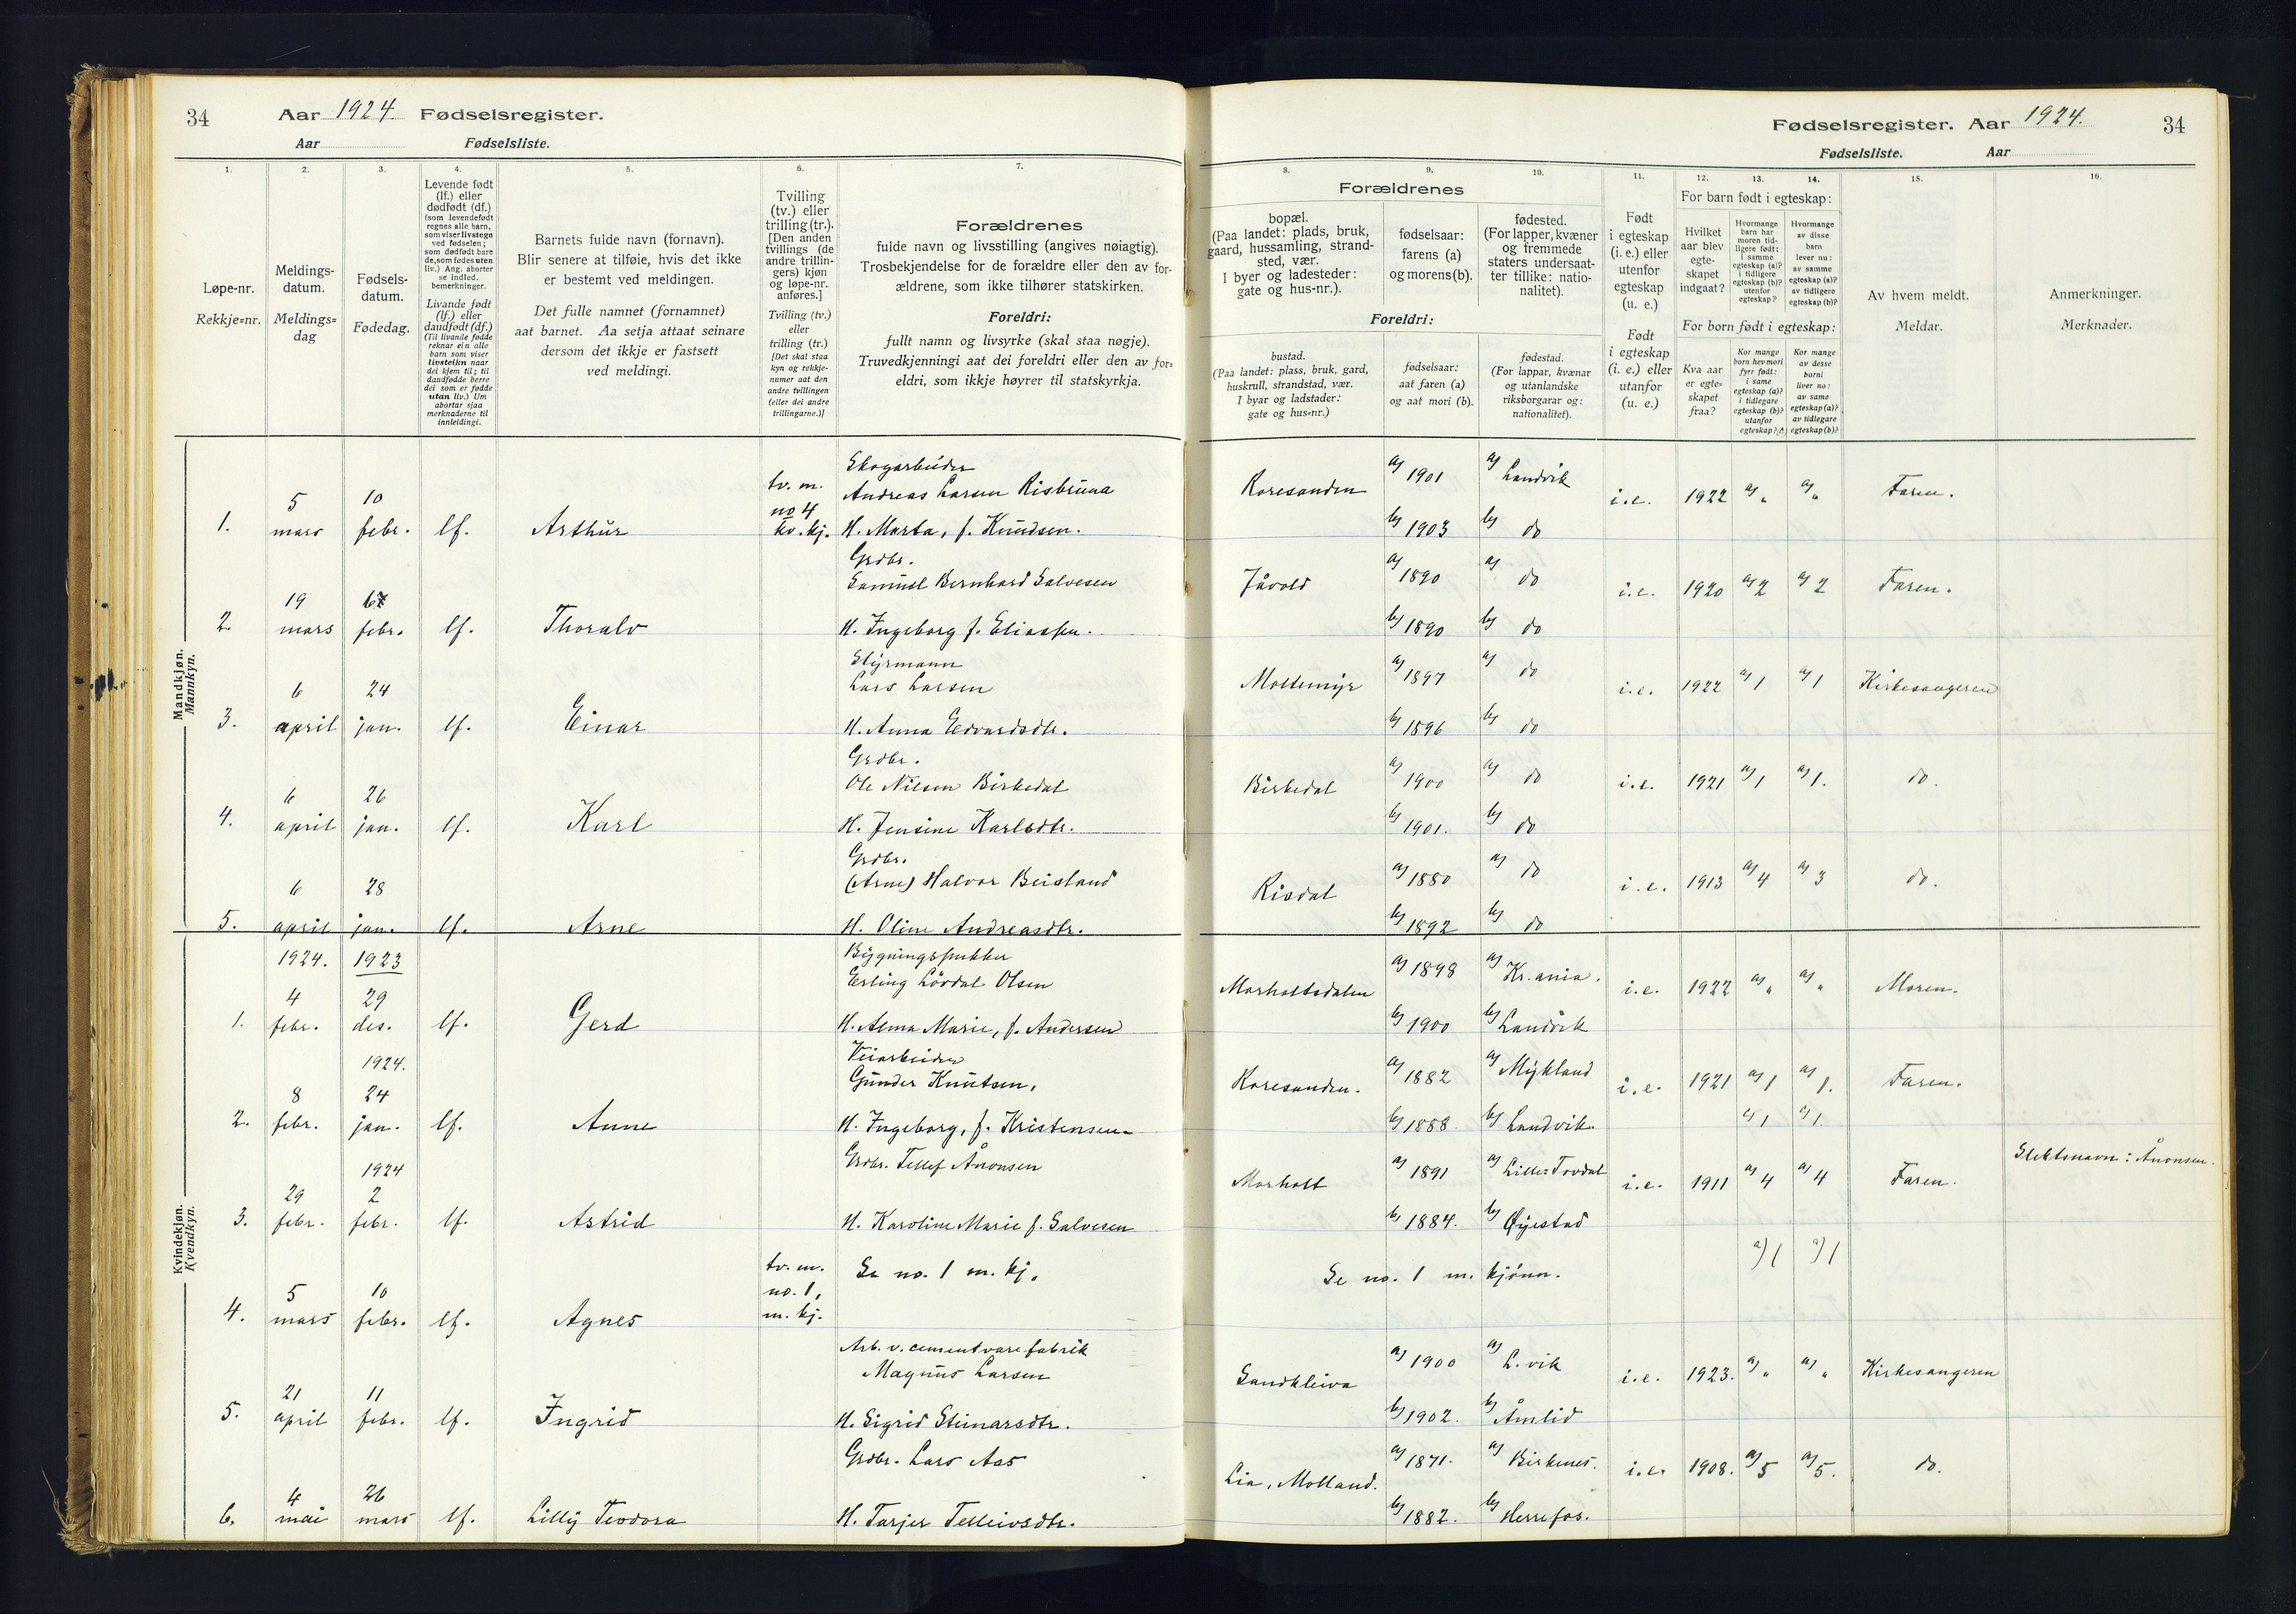 34 Aar 1924. Fødselsregister.
Aar Fødselsliste.
1. 2. 3. 4. 5. 6. 7.
Løpe-nr.
Rekkje=nr.
Meldings-
datum.
Meldings=
dag
Fødsels-
datum.
Fødedag.
Levende født
(lf.) eller
dødfødt (df.)
(som levendefødt
regnes alle barn,
som viser livstegn
ved fødselen;
som dødfødt bare
de, som fødes uten
liv.) Ang. aborter
se indled.
bemerkninger.
Livande født
(lf.) eller
daudfødt (df.)
(Til livande fødde
reknar ein alle
barn som viser
livsteikn naar
dei kjem til; til
daudfødde berre
dei som er fødde
utan liv.) Um
abortar sjaa
merknaderne til
innleidingi.
Barnets fulde navn (fornavn).
Blir senere at tilføie, hvis det ikke
er bestemt ved meldingen.
Det fulle namnet (fornamnet)
aat barnet. Aa setja attaat seinare
dersom det ikkje er fastsett
ved meldingi.
Tvilling
(tv.) eller
trilling (tr.).
[Den anden
tvillings (de
andre trillin-
gers) kjøn
og løpe-nr.
anføres.]
Tvilling (tv.)
eller
trilling (tr.)
[Det skal staa
kyn og rekkje-
numer aat den
andre tvillingen
(eller dei andre
trillingarne.)]
Forældrenes
fulde navn og livsstilling (angives nøiagtig).
Trosbekjendelse for de forældre eller den av for-
ældrene, som ikke tilhører statskirken.
Foreldri:
fullt namn og livsyrke (skal staa nøgje).
Truvedkjenningi aat dei foreldri eller den av for=
eldri, som ikkje høyrer til statskyrkja.
Mandkjøn.
Mannkyn.
Skogarbeider
1. 5 mars 10 febr. lf. Arthur tv. m. no 4 kv. kj. Andreas Larsen Risbruna
H. Marta, f. Knudsen.
Grdbr.
Samuel Bernhard Salvesen
2. 19 mars febr. lf. Thoralv H. Ingeborg f. Eliassen.
Styrmann
Lars Larsen
3. 6 april 24 jan. lf. Einar H. Anna Edvardsdtr.
Grdbr.
Ole Nilsen Birkedal
4. 6 april 26 jan. lf. Karl H. Jensine Karlsdtr.
Grdbr.
(Arne) Halvor Beisland
5. 6 april 28 jan. lf. Arne H. Oline Andreasdtr.
Kvindekjøn.
Kvendkyn.
1924. 1923
Erling Lövdal Olsen
1. 4 febr. 29 des. lf. Gerd H. Alma Marie, f. Andersen
1924.
Veiarbeider
Gunder Knutsen,
2. 8 febr. 24 jan. lf. Anne H. Ingeborg, f. Kristensen
1924
Grdbr. Tellef Ånonsen
3. 29 febr. 2 febr. lf. Astrid H. Karoline Marie f. Salvesen
4. 5 mars 10 febr. lf. Agnes tv. m. no. 1, m. kj. Se no. 1 m. kj.
Arb. v. cementvarefabrik
Magnus Larsen
5. 21 april 11 febr. lf. Ingrid H. Sigrid Steinarsdtr.
Grdbr. Lars Aas
6. 4 mai 26 mars lf. Lilly Teodora H. Tarjer Telleivsdtr.
Fødselsregister. Aar 1924. 34
Fødselsliste. Aar
8. 9. 10. 11. 12. 13. 14. 15. 16.
Forældrenes
bopæl.
(Paa landet: plads, bruk,
gaard, hussamling, strand-
sted, vær.
I byer og ladesteder:
gate og hus-nr.).
fødselsaar:
farens (a)
og morens (b).
fødested.
(For lapper, kvæner
og fremmede
staters undersaat-
ter tillike: natio-
nalitet).
Foreldri:
bustad.
(Paa landet: plass, bruk, gard,
huskrull, strandstad, vær.
I byar og ladstader:
gate og hus=nr.)
fødselsaar:
aat faren (a)
og aat mori (b).
fødestad.
(For lappar, kvænar
og utanlandske
riksborgarar og:
nationalitet).
Født
i egteskap
(i. e.) eller
utenfor
egteskap
(u. e.)
Født
i egteskap
(i. e.) eller
utanfor
egteskap
(u. e.)
For barn født i egteskap:
Hvilket
aar blev
egte-
skapet
indgaat?
Hvormange
barn har
moren tid-
ligere født:
i samme
egteskap (a)?
i tidligere
egteskap (b)?
utenfor
egteskap?
Hvormange
av disse
barn
lever nu:
av samme
egteskap (a)?
av tidligere
egteskap (b)?
For born født i egteskap:
Kva aar
er egte=
skapet
fraa?
Kor mange
born hev mori
fyrr født:
i same
egteskap (a)?
i tidlegare
egteskap (b)?
utanfor
egteskap?
Kor mange
av desse
borni
liver no:
av same
egteskap (a)?
av tidlegare
egteskap (b)?
Av hvem meldt.
Meldar.
Anmerkninger.
Merknader.
Roresanden a) 1901 a) Landvik i. e. 1922 a) " a) " Faren.
b) 1903 b) do
Jåvold a) 1890 a) do i. e. 1920 a) 2 a) 2 Faren.
b) 1890 b) do
Moltemyr a) 1897 a) do i. e. 1922 a) 1 a) 1 Kirkesangeren
b) 1896 b) do
Birkedal a) 1900 a) do i. e. 1921 a) 1 a) 1. do.
b) 1901. b) do
Risdal a) 1880 a) do i. e. 1913 a) 4 a) 3 do.
b) 1892 b) do
Morholtsdalen a) 1898 a) Kr.ania. i. e. 1922 a) " a) " Moren.
b) 1900 b) Landvik
Roresanden. a) 1882 a) Mykland i. e. 1921 a) 1 a) 1. Faren.
b) 1888 b) Landvik. c) 1 c) 1.
Slektsnavn: Ånonsen.
Morholt a) 1891 a) Lille=Tovdal i. e. 1911 a) 4 a) 4 Faren.
b) 1884. b) Øyestad
Se no. 1 m. kjönn. a) 1 a) 1
Sandkleiva a) 1900 a) L.vik i. e. 1923. a) " a) " Kirkesangeren
b) 1902. b) Åmlid
Lia, Molland. a) 1871. a) Birkenes. i. e. 1908. a) 5 a) 5. do.
b) 1882. b) Herrefos.